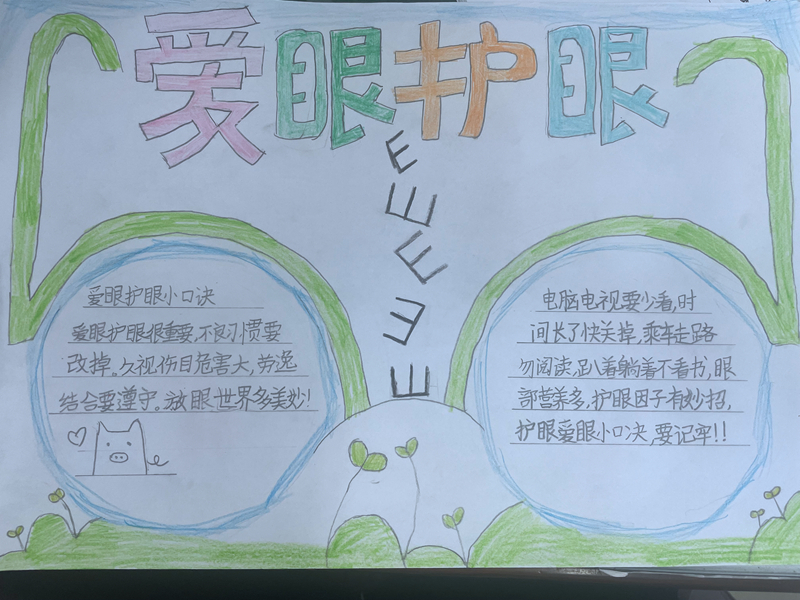 爱眼护眼
E
E
E
E
E
爱眼护眼小口诀
爱眼护眼很重要,不良习惯要
改掉。久视伤目危害大,劳逸
结合要遵守。放眼世界多美妙!
电脑电视要少看,时
间长了快关掉,乘车走路
勿阅读,趴着躺着不看书,眼
部营养多,护眼因子有妙招,
护眼爱眼小口决,要记牢!!